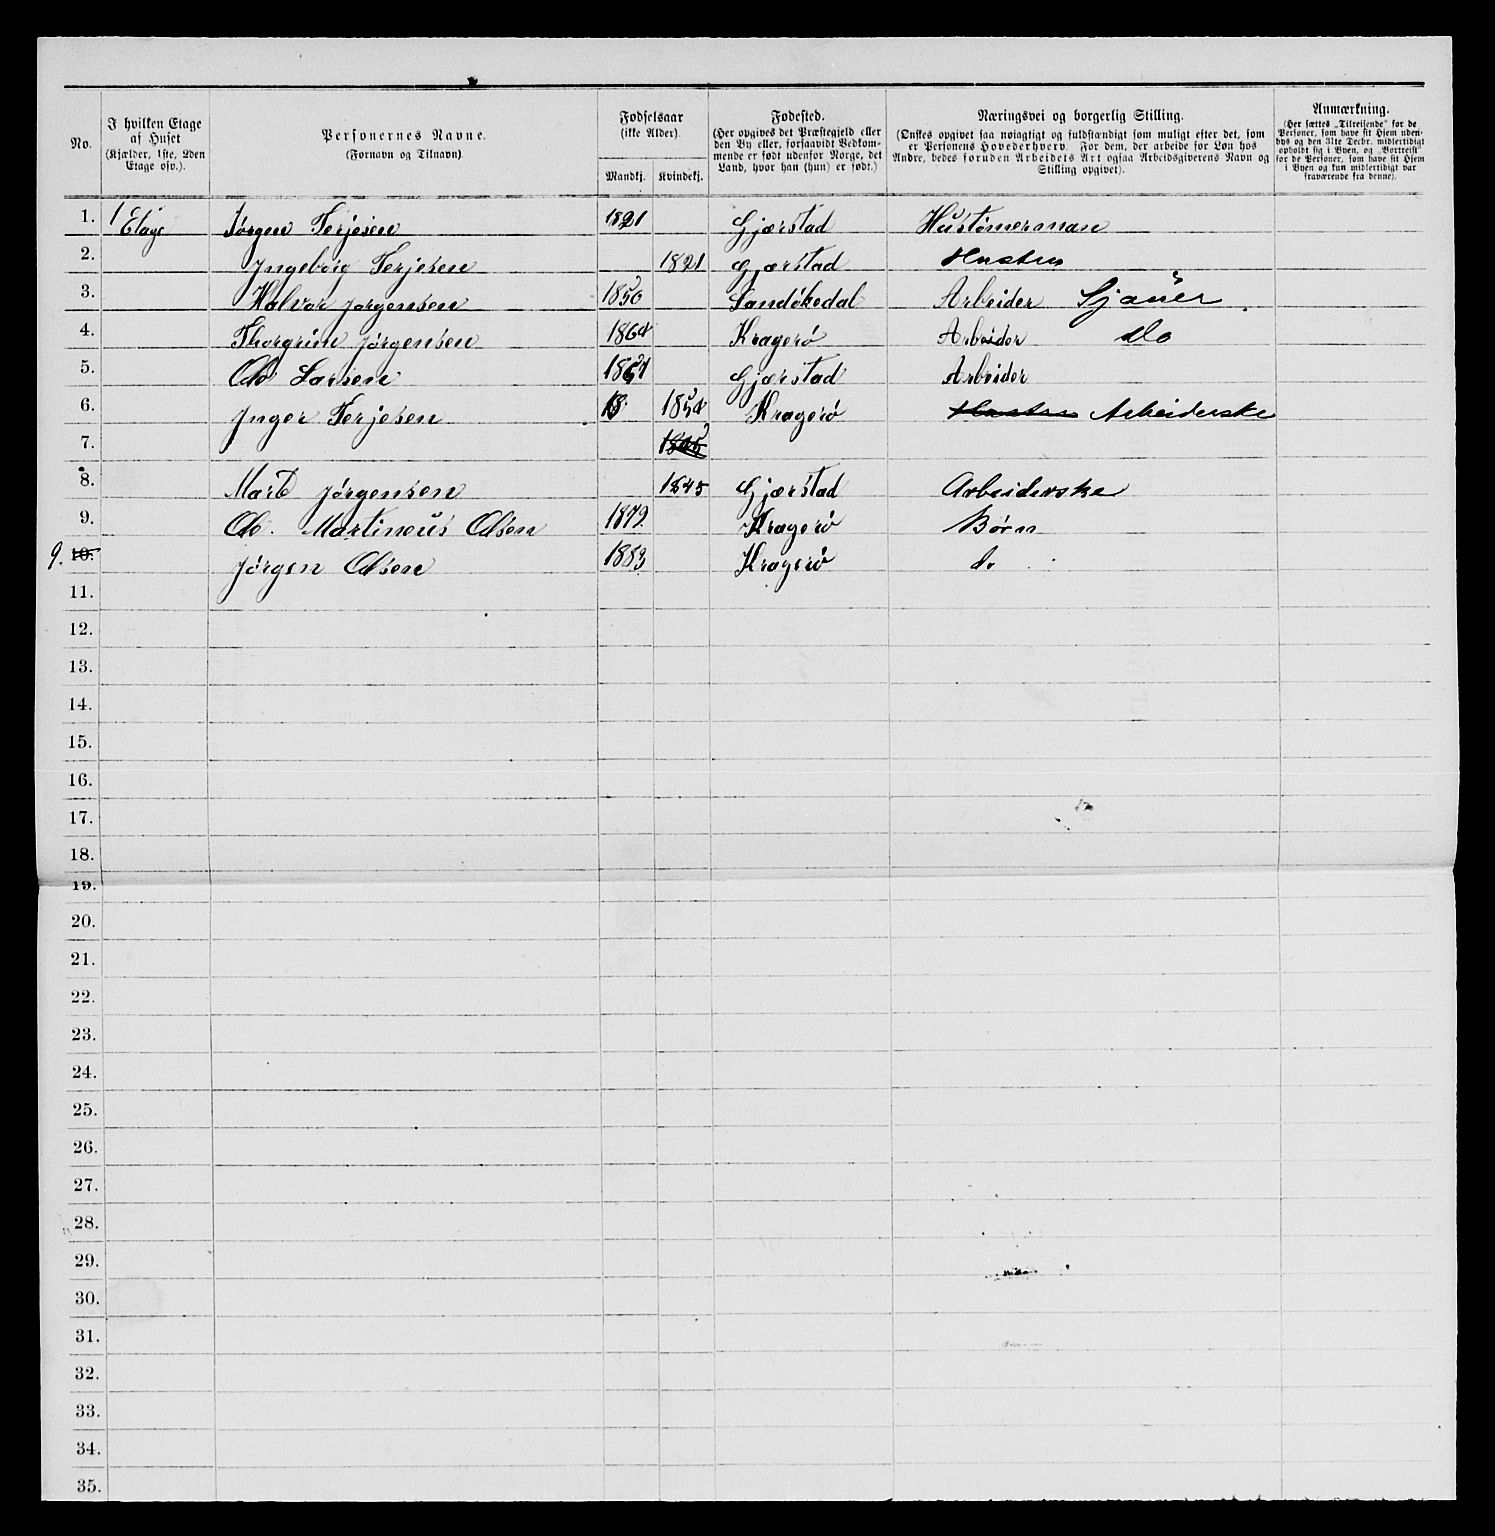 No.
I hvilken Etage af Huset (Kjælder, 1ste, 2den Etage osv.).
Personernes Navne. (Fornavn og Tilnavn)
Fødselsaar (ikke Alder)
Mandkj. Kvindekj.
Fødested. (Her opgives det Præstegjeld eller den By eller, forsaavidt Vedkommende er født udenfor Norge, det Land, hvor han (hun) er født.)
Næringsvei og borgerlig Stilling. (Ønskes opgivet saa nøiagtigt og fuldstændigt som muligt efter det, som er Personens Hovederhverv. For dem, der arbeide for Løn hos Andre, bedes foruden Arbeidets Art ogsaa Arbeidsgiverens Navn og Stilling opgivet).
Anmærkning. (Her sættes „Tilreisende“ for de Personer, som have sit Hjem udenbys og den 31te Decbr. midlertidigt opholdt sig i Byen, og „Bortreist“ for de Personer, som have sit Hjem i Byen og kun midlertidigt var fraværende fra denne).
1. 1 Etage Jørgen Terjesen 1821 Gjærstad Hustømerman
2. Ingebrig Terjesen 1821 Gjærstad Hustru
3. Halvor Jørgensen 1850 Sandøkedal Arbeider Sjauer
4. Thorgrim Jørgensen Kragerø Arbeider do
5. Ole Larsen Gjærstad Arbeider
6. Inger Terjesen 18 Kragerø Hustru Arbeiderske
7. 1845
8. Jørgensen 1845 Gjærstad Arbeiderske
9. Ole Martineus Olsen 1879 Kragerø Børn
9. 10. Jørgen Olsen 1883 Kragerø do
11.
12.
13.
14.
15.
16.
17.
18.
19.
20.
21.
22.
23.
24.
25.
26.
27.
28.
29.
30.
31.
32.
33.
34.
35.